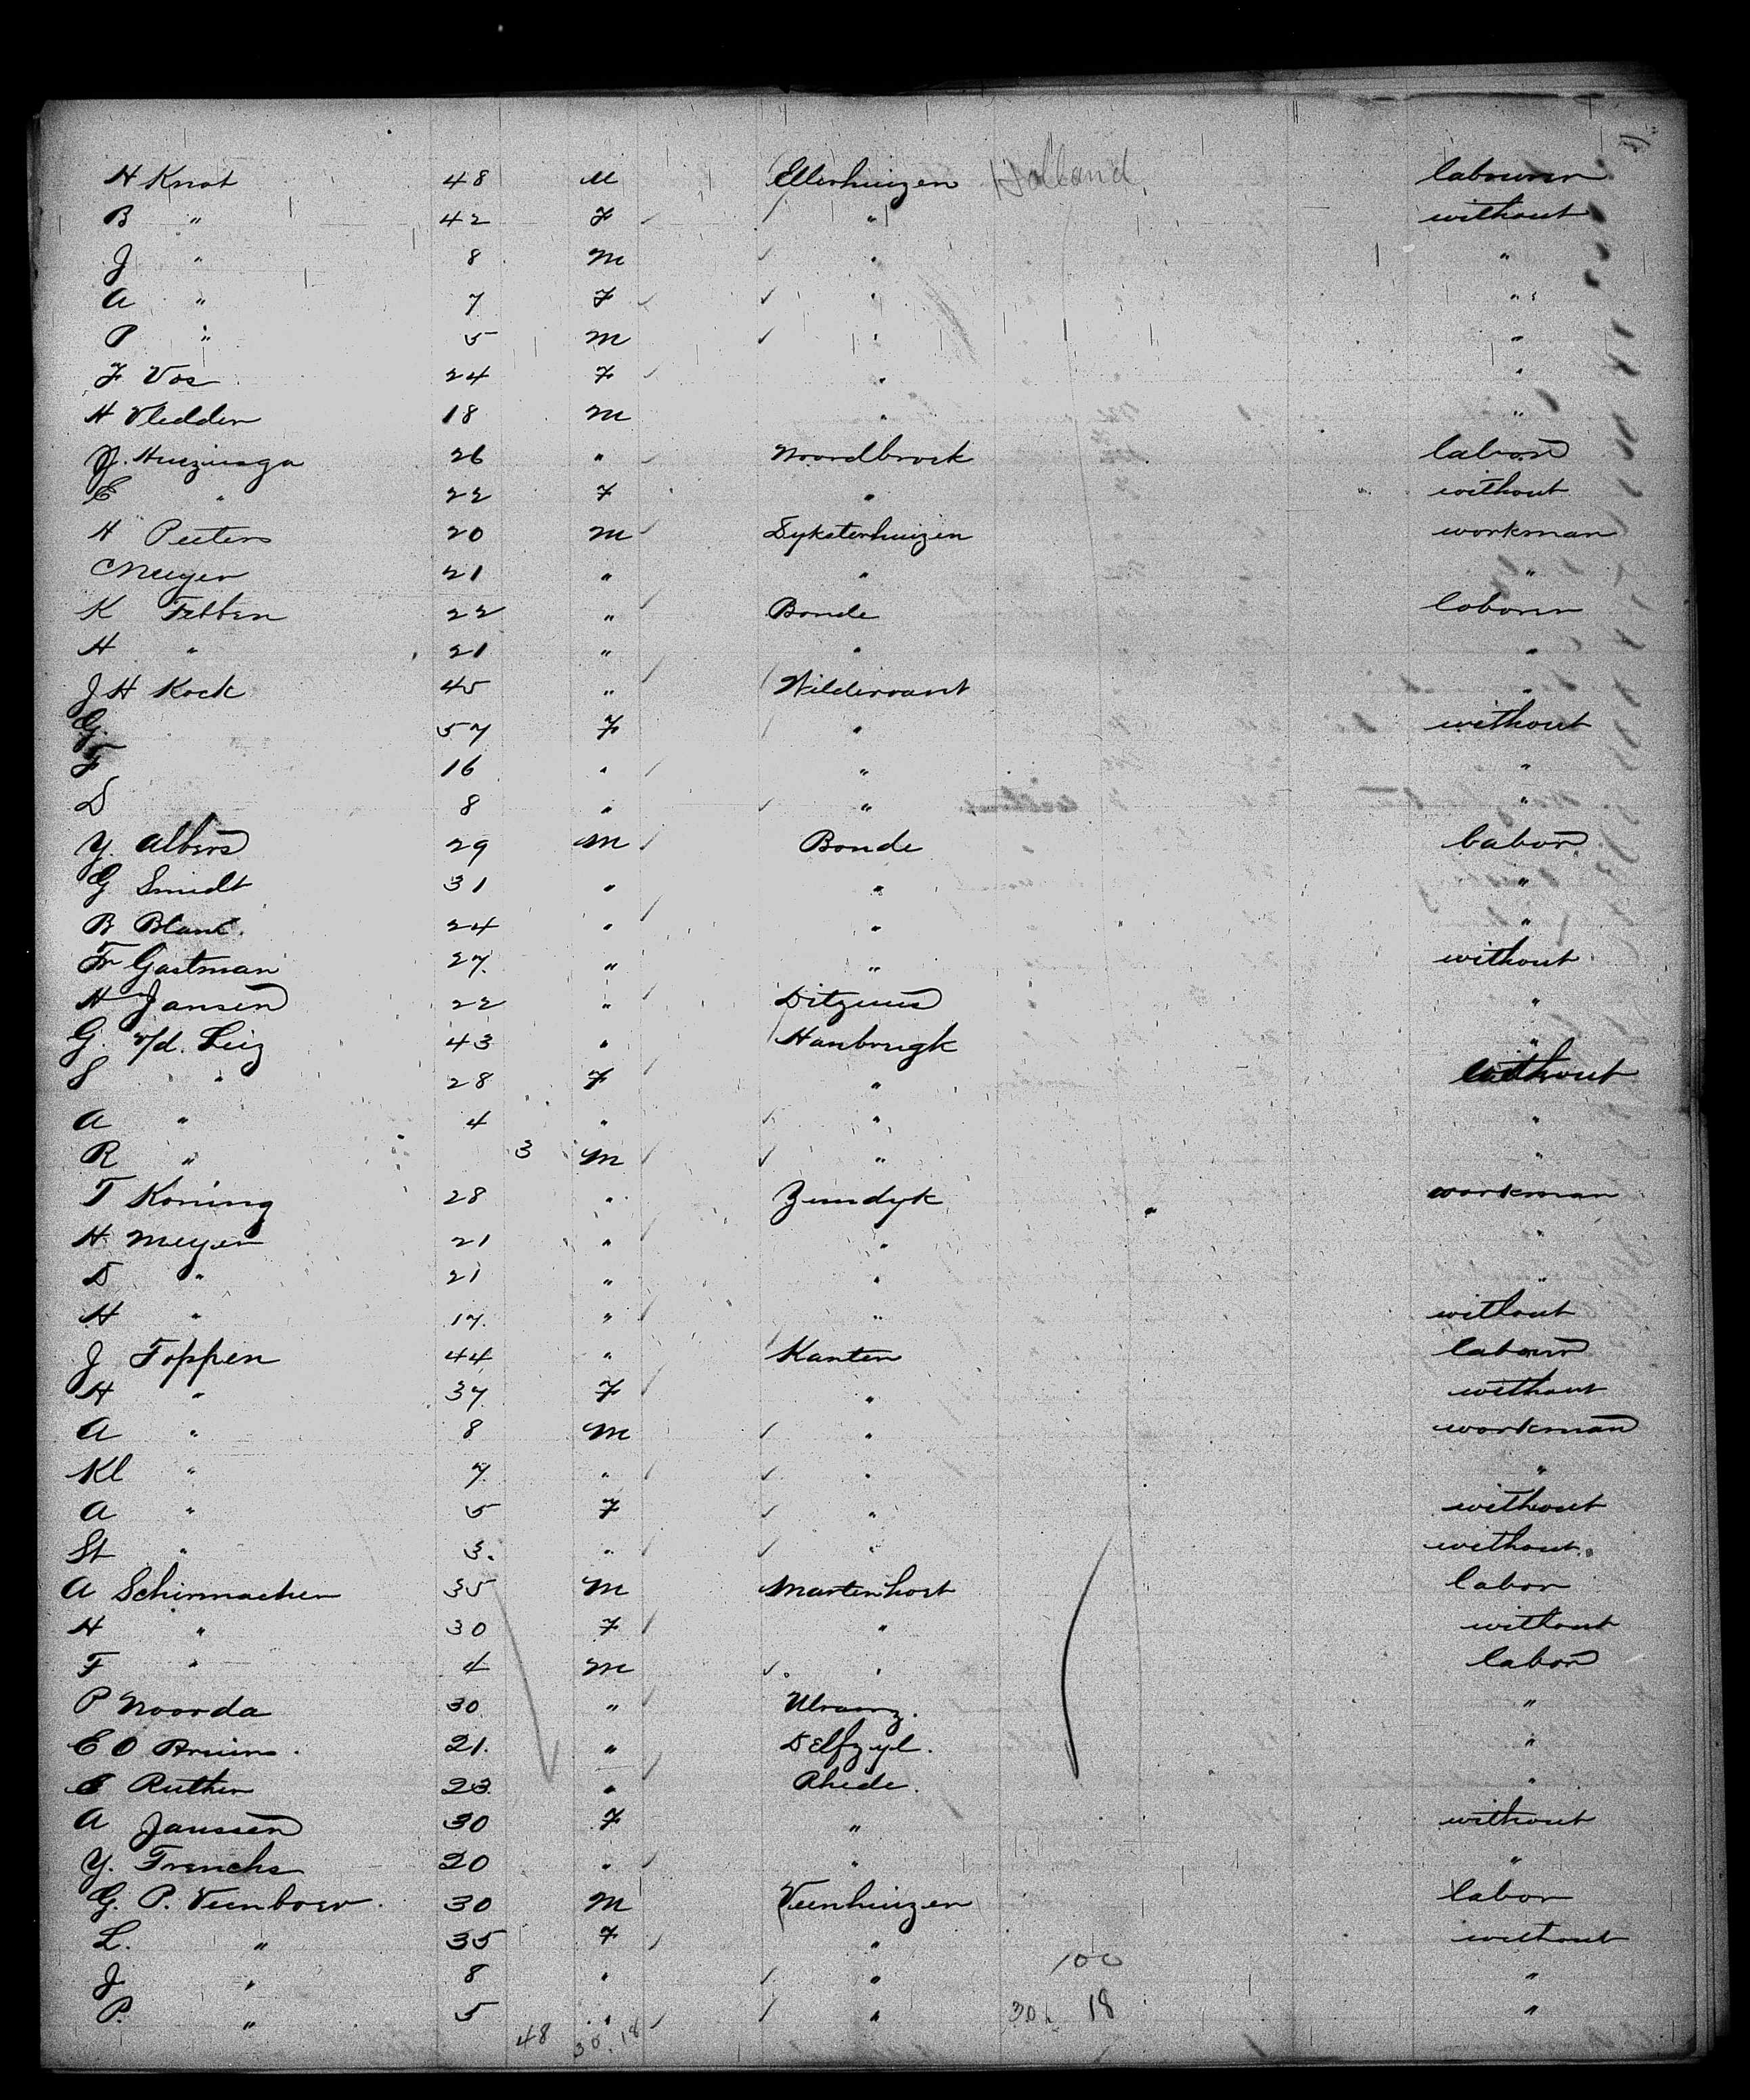 H Knot 48 M Ellerhuizen Holland labourer
B " 42 F " without
J " 8 M " "
A " 7 F " "
P " 5 M " "
F Vos 24 F " "
H Vledder 18 M " "
J. Huizinga 26 " Noordbroek labor
E " 22 F " without
H Peeters 20 M Dyksterhuizen workman
C Meyer 21 " " "
K Tebben 22 " Bonde laborer
H " 21 " " "
J H Kock 45 " Wildervant "
G 57 F " without
F 16 " " "
D 8 " " "
Y. Albers 29 M Bonde labor
G Smidt 31 " " "
B Blank 24 " " "
Fr Gastman 27 " " without
H Jansen 22 " Ditzum "
G. v/d. Leiz 43 " Hanbrugk "
S " 28 F " without
A " 4 " " "
R " 3 M " "
T Koning 28 " Zeerdyk workman
H Meyer 21 " " "
D " 21 " " "
H " 17 " " without
J Toppen 44 " Kanten labour
H " 37 F " without
A " 8 M " workman
Kl " 7 " " "
A " 5 F " without
St " 3. " " without
A Schirmacher 35 M Martenhost labor
H " 30 F " without
F " 4 M " labor
P Noorda 30 " "
E O Bruins. 21. " Delfzyl. "
E Ruther 23 " Rhede. "
A Janssen 30 F " without
Y. Frenchs 20 " " "
G. P. Veenboer. 30 M Veenhuizen labor
L. " 35 F " without
J " 8 " " "
100
P. " 5 " " 30 18 "
48 30. 18